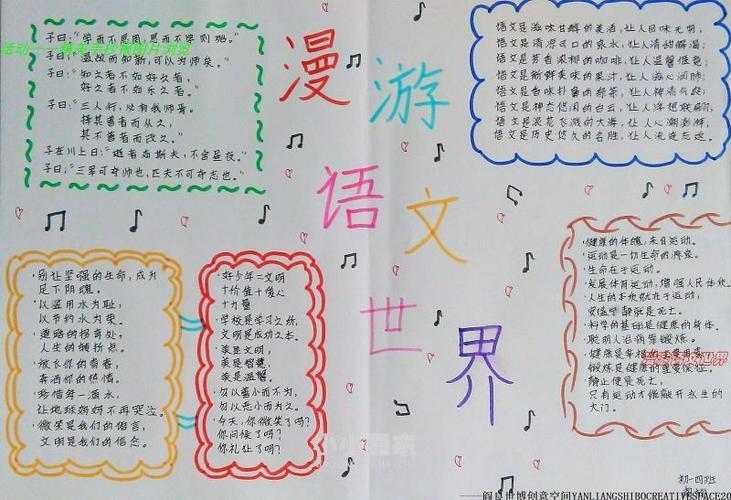 漫游
语文
世界
子曰:“学而不思罔,思而不学则殆。”
子曰:“温故而知新,可以为师矣。”
子曰:“知之者不如好之者,
好之者不如乐之者。”
子曰:“三人行,必有我师焉。
择其善者而从之,
其不善者而改之。”
子在川上曰:“逝者如斯夫,不舍昼夜。”
子曰:“三军可夺帅也,匹夫不可夺志也。”
语文是滋味甘醇的美酒,让人回味无穷;
语文是清凉可口的泉水,让人清甜解渴;
语文是芳香浓郁的咖啡,让人温馨惬意;
语文是新鲜美味的果汁,让人沁心润肺;
语文是香味扑鼻的绿茶,让人神清气爽;
语文是神态悠闲的白云,让人浮想联翩;
语文是浪花飞溅的大海,让人心潮澎湃;
语文是历史悠久的名胜,让人流连忘返。
·别让坚强的生命,成为
足下阴魂。
·以滥用水为耻,
以节约水为荣。
·道路的拐弯处,
人生的转折点。
·放飞你的青春,
挥洒你的热情。
·珍惜每一滴水,
让地球妈妈不再哭泣。
·微笑是我们的语言,
文明是我们的信念。
·好少年=文明
十价值十爱心
十力量
·学校是学习之所,
文明是成功之本。
·美是文明,
美是智慧,
美是温馨。
·勿以善小而不为,
勿以恶小而为之。
·今天,你微笑了吗?
你问候了吗?
你礼让了吗?
·健康的体魄,来自运动。
·运动是一切生命的源泉。
·生命在于运动。
·发展体育运动,增强人民体质。
·人生的本质就在于运动,
安谧宁静就是死亡。
·科学的基础是健康的身体。
·聪明人治病靠锻炼。
·健康是幸福的主要因素,
锻炼是健康的重要保证。
·静止便是死亡,
只有运动才能敲开永生的
大门。
初一四班
——阎良世博创意空间YANLIANGSHIBOCREATIVESPACE20